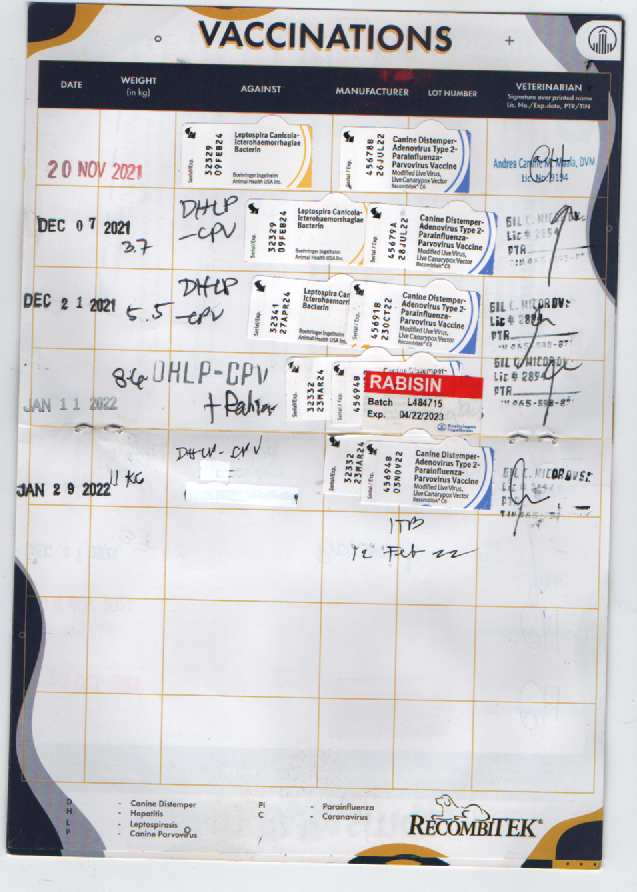 VACCINATIONS
DATE
WEIGHT
(in kg)
AGAINST
MANUFACTURER
LOT NUMBER
VETERINARIAN
Signature over printed name
Lic. No./Exp. date, PTR/TIN
20 NOV 2021
Serial/Exp.
32329
09FEB24
Leptospira Canicola-
Icterohaemorrhagiae
Bacterin
Boehringer Ingelheim
Animal Health USA Inc.
Serial/Exp.
45678B
26JUL22
Canine Distemper-
Adenovirus Type 2-
Parainfluenza-
Parvovirus Vaccine
Modified Live Virus,
Live Canarypox Vector
Recombitek® C6
Andrea
DVM
Lic. No. 9194
DEC 07 2021
3.7
DHLP
-CPV
Serial/Exp.
32329
09FEB24
Leptospira Canicola-
Icterohaemorrhagiae
Bacterin
Boehringer Ingelheim
Animal Health USA Inc.
Serial/Exp.
45679A
28JUL22
Canine Distemper-
Adenovirus Type 2-
Parainfluenza-
Parvovirus Vaccine
Modified Live Virus,
Live Canarypox Vector
Recombitek® C6
GIL C. MICOR
Lic # 2894
PTR
DEC 21 2021
5.5
DHLP
-CPV
Serial/Exp.
32341
27APR24
Leptospira Can
Icterohaemorr
Bacterin
Boehringer Ingelheim
Animal Health USA Inc.
Serial/Exp.
45691B
23OCT22
Canine Distemper-
Adenovirus Type 2-
Parainfluenza-
Parvovirus Vaccine
Modified Live Virus,
Live Canarypox Vector
Recombitek® C6
GIL C. MICOR
Lic # 289
PTR
JAN 11 2022
DHLP-CPV
Serial/Exp.
32332
23MAR24
45694B
Canine Distemper-
RABISIN
Batch L484715
Exp. 04/22/2023
Boehringer
Ingelheim
GIL C. MICOR
Lic # 2894
PTR
JAN 29 2022
11 KG
DHLP-CPV
Serial/Exp.
32332
23MAR24
Serial/Exp.
45694B
03NOV22
Canine Distemper-
Adenovirus Type 2-
Parainfluenza-
Parvovirus Vaccine
Modified Live Virus,
Live Canarypox Vector
Recombitek® C6
GIL C. MICOR
12 Feb 22
D - Canine Distemper
H - Hepatitis
L - Leptospirosis
P - Canine Parvovirus
Pi - Parainfluenza
C - Coronavirus
RECOMBITEK®